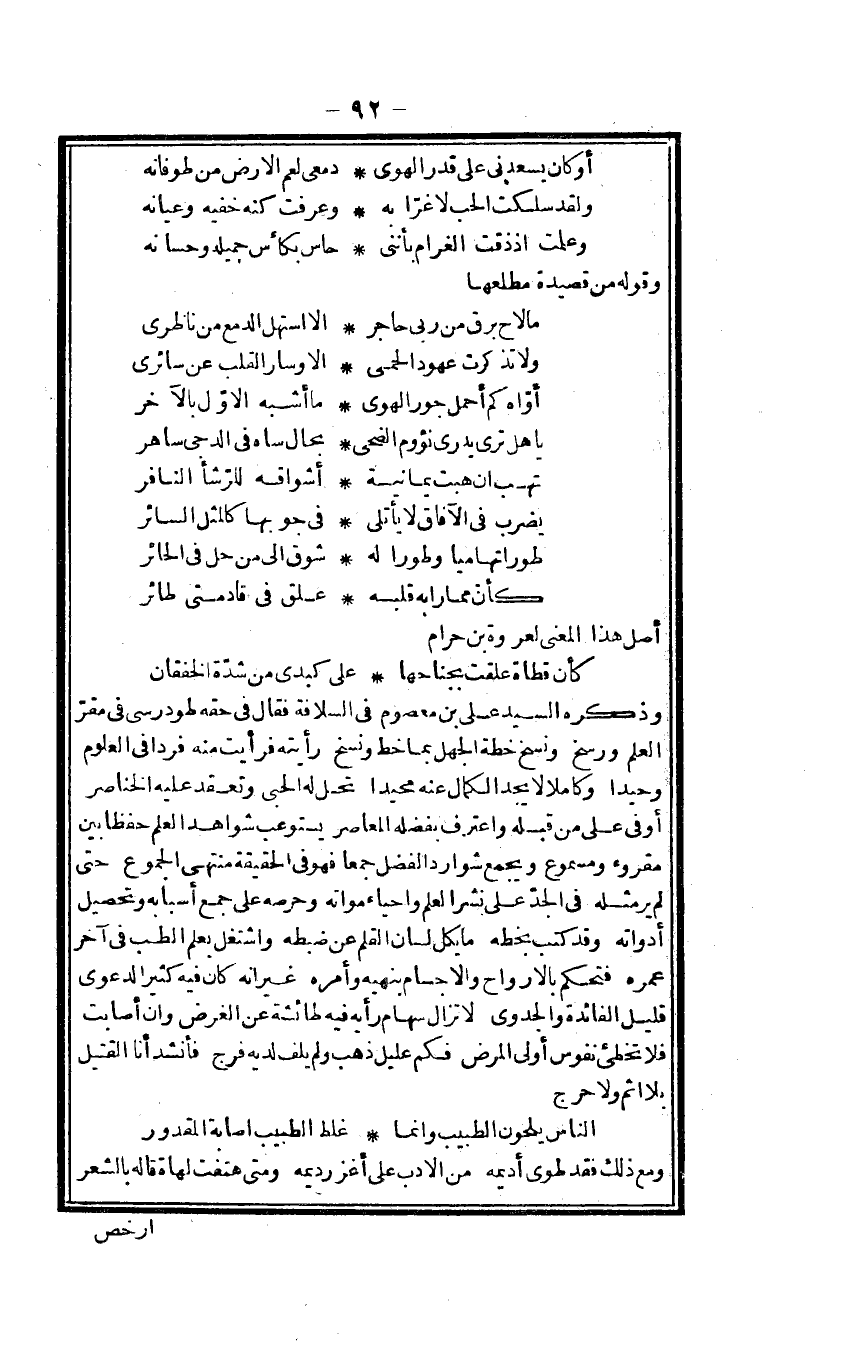 - ٩٢ -
أو كان يسعدنى على قدر الهوى * دمعى لعم الارض من طوفانه
ولقد سلكت الحب لا غرّا به * وعرفت كنه خفيه وعيانه
وعلمت اذ ذقت الغرام بأننى * حاس بكاأس جميله وحسانه
وقوله من قصيدة مطلعها
مالاح برق من ربى حاجر * الا استهل الدمع من ناظرى
ولا تذكرت عهود الحمى * الا وسار القلب عن سائرى
أوّاه كم أحمل جور الهوى * ما أشبه الاوّل بالآخر
يا هل ترى يدرى نؤوم الضحى * بحال ساه فى الدجى ساهر
تهب ان هبت يمانية * أشواقه للرّشأ النافر
يضرب فى الآفاق لا يأتلى * فى جوبها كالمثل السائر
طورا تهاميا وطورا له * شوق الى من حل فى الحائر
كأن ممارابه قلبه * علق فى قادمتى طائر
أصل هذا المعنى لعروة بن حرام
كأن قطاة علقت بجناحها * على كبدى من شدّة الخفقان
وذكره السيد على بن معصوم فى السلافة فقال فى حقه طود رسى فى مقرّ
العلم ورسخ ونسخ خطة الجهل بما خط ونسخ رأيته فرأيت منه فردا فى العلوم
وحيدا وكاملا لا يجد الكمال عنه محيدا تحل له الحبى وتعقد عليه الخناصر
أوفى على من قبله واعترف بفضله المعاصر يستوعب شواهد العلم حفظا بين
مقروء ومسموع ويجمع شوارد الفضل جمعا فهو فى الحقيقة منتهى الجموع حتى
لم ير مثله فى الجدّ على نشر العلم واحياء مواته وحرصه على جمع أسبابه وتحصيل
أدواته وقد كتب بخطه ما يكل لسان القلم عن ضبطه واشتغل بعلم الطب فى آخر
عمره فتحكم بالارواح والاجسام بنهيه وأمره غير انه كان فيه كثير الدعوى
قليل الفائدة والجدوى لا تزال سهام رأيه فيه طائشة عن الغرض وان أصابت
فلا تخطئ نفوس أولى المرض فكم عليل ذهب ولم يلف لديه فرج فأنشد أنا القتيل
بلا اثم ولا حرج
الناس يلحون الطبيب وانما * غلط الطبيب اصابة المقدور
ومع ذلك فقد طوى أديمه من الادب على أغزر ديمه ومتى هتفت لهاة قاله بالشعر
ارخص